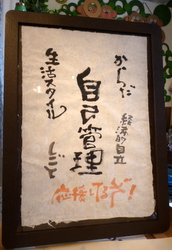 からだ
経済的自立
自己管理
生活スタイル
しごと
応援するぞ!